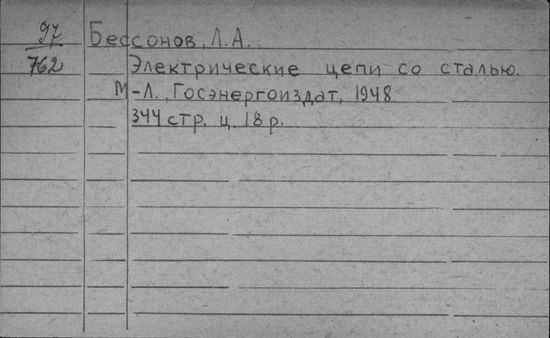 97
762
Бессонов, Л.А.
Электрические цепи со сталью.
М-Л., Госэнергоиздат, 1948
344 стр. ц. 18 р.